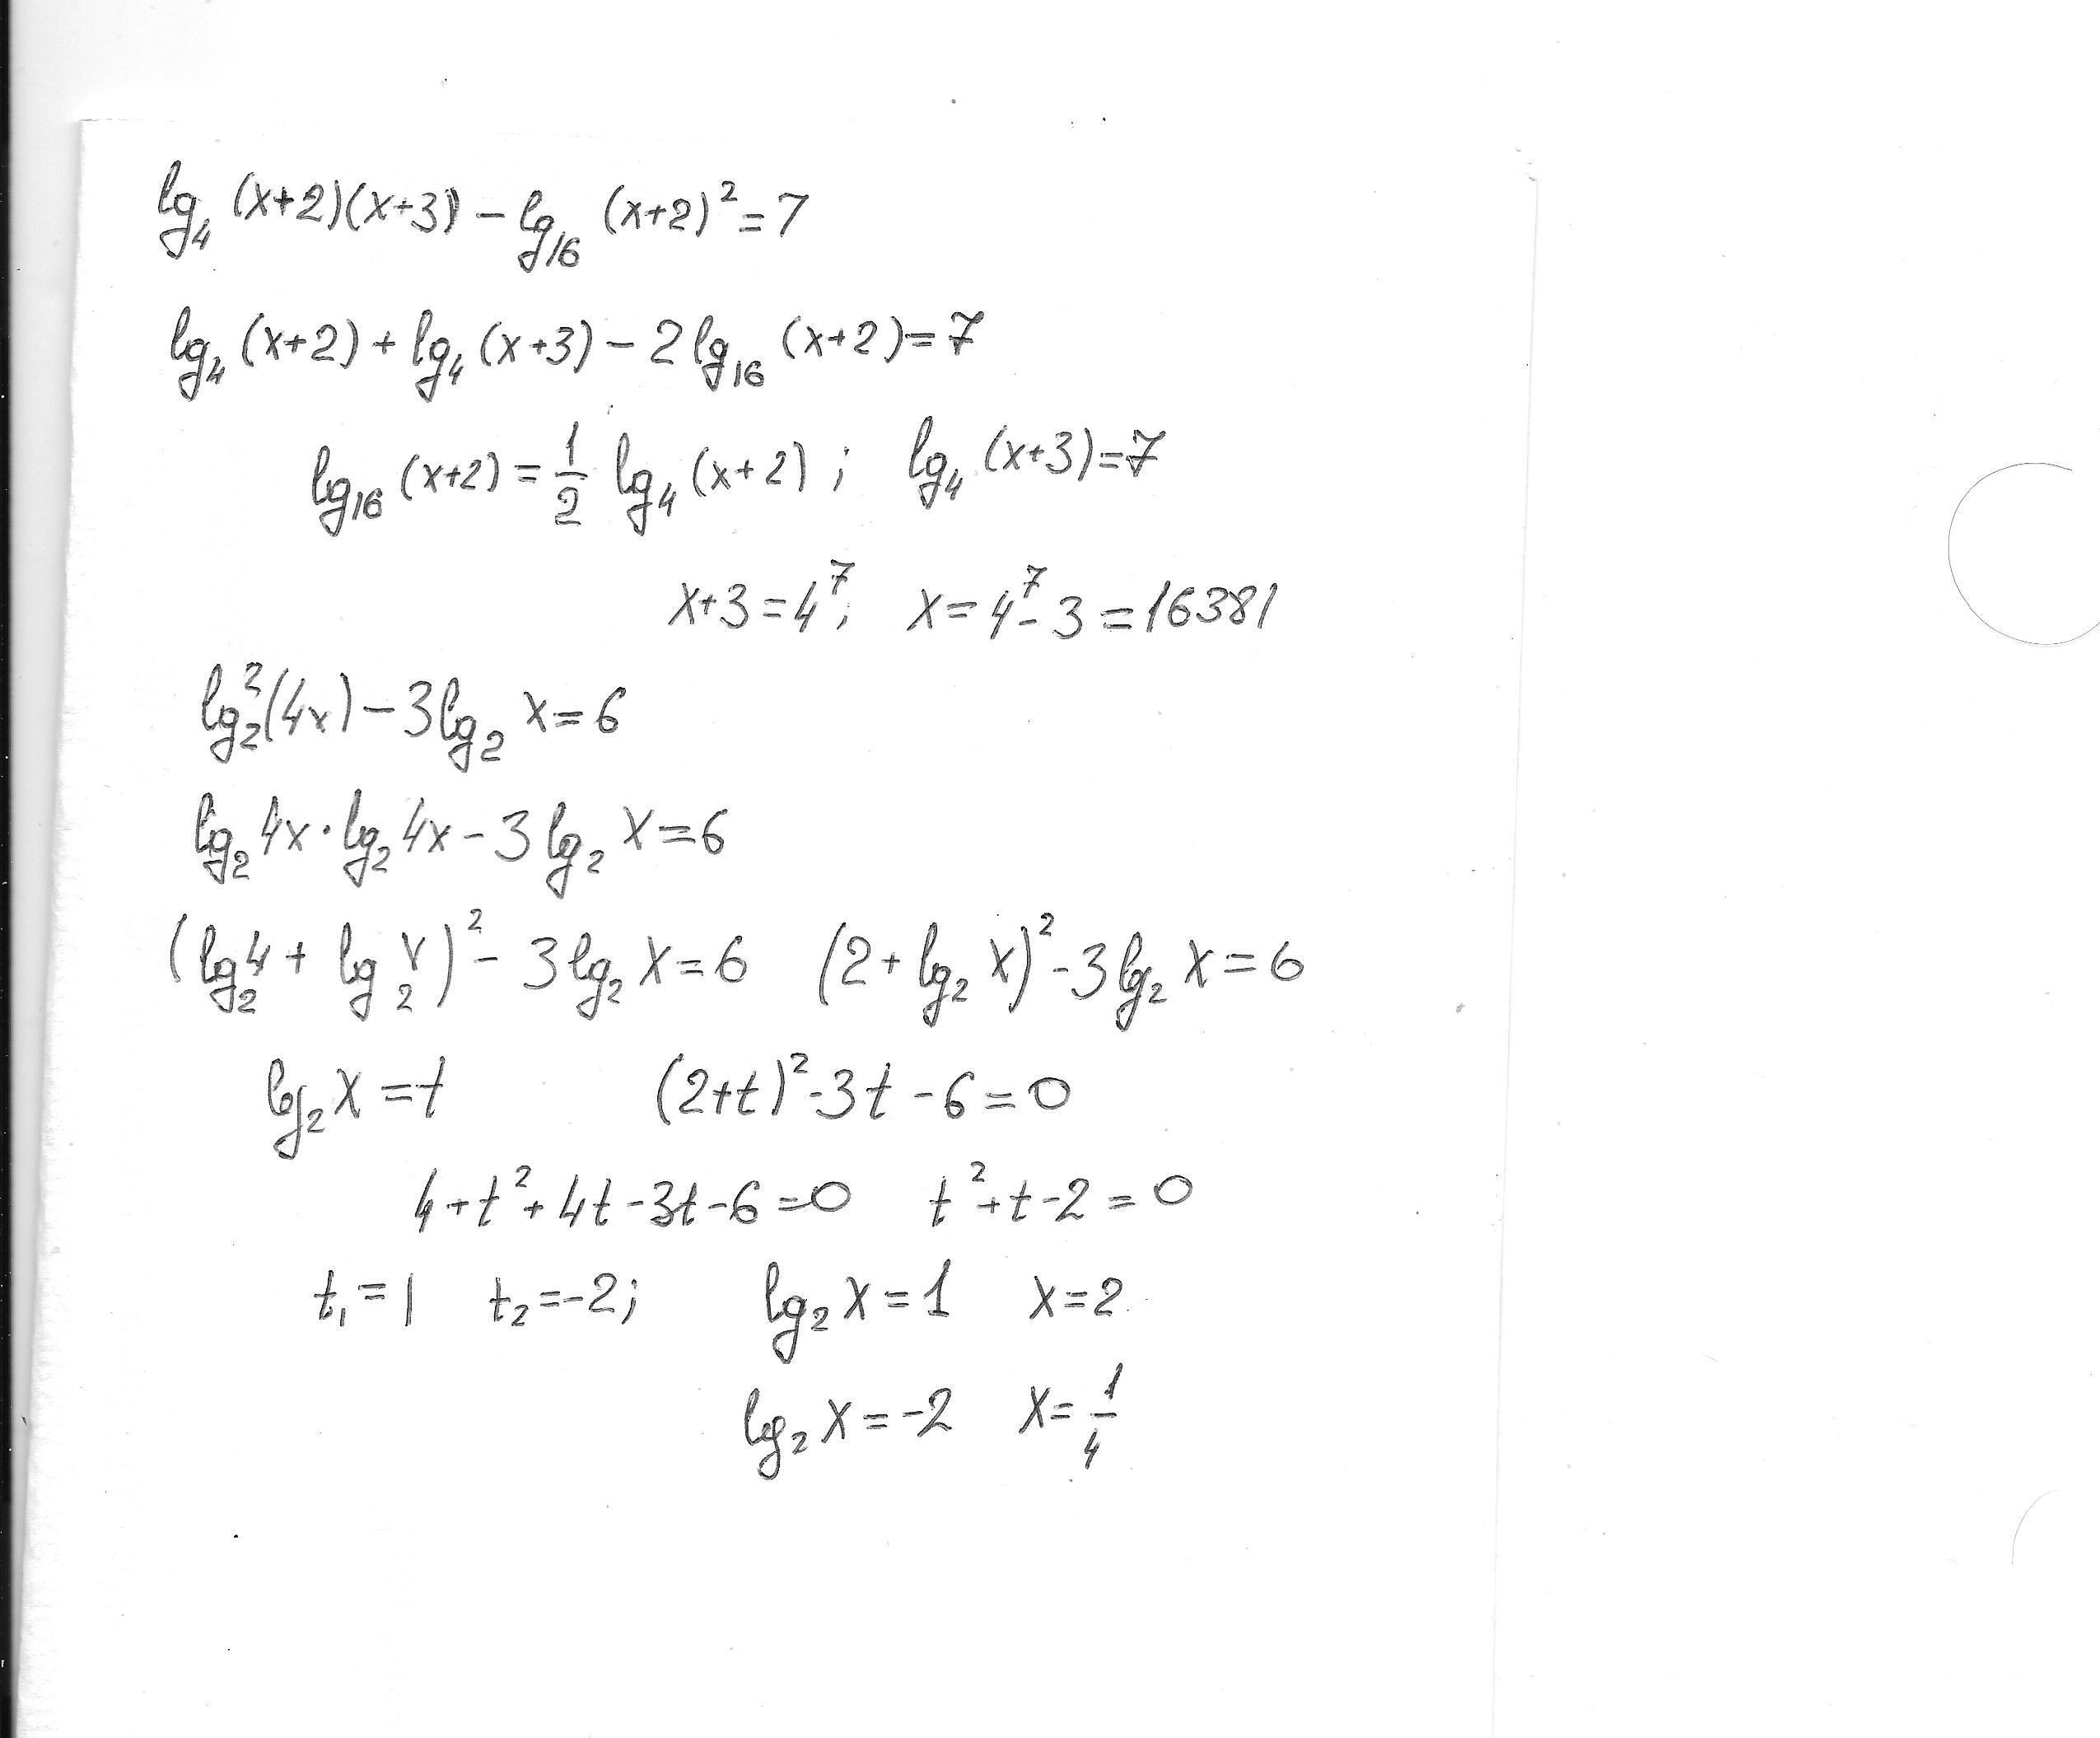 lg₄ (x+2)(x+3) - lg₁₆ (x+2)² = 7
lg₄ (x+2) + lg₄ (x+3) - 2 lg₁₆ (x+2) = 7
lg₁₆ (x+2) = 1/2 lg₄ (x+2) ; lg₄ (x+3) = 7
x+3 = 4⁷; x = 4⁷ - 3 = 16381
lg₂² (4x) - 3 lg₂ x = 6
lg₂ 4x · lg₂ 4x - 3 lg₂ x = 6
(lg₂ 4 + lg₂ x)² - 3 lg₂ x = 6 (2 + lg₂ x)² - 3 lg₂ x = 6
lg₂ x = t (2+t)² - 3t - 6 = 0
4 + t² + 4t - 3t - 6 = 0 t² + t - 2 = 0
t₁ = 1 t₂ = -2; lg₂ x = 1 x = 2
lg₂ x = -2 x = 1/4